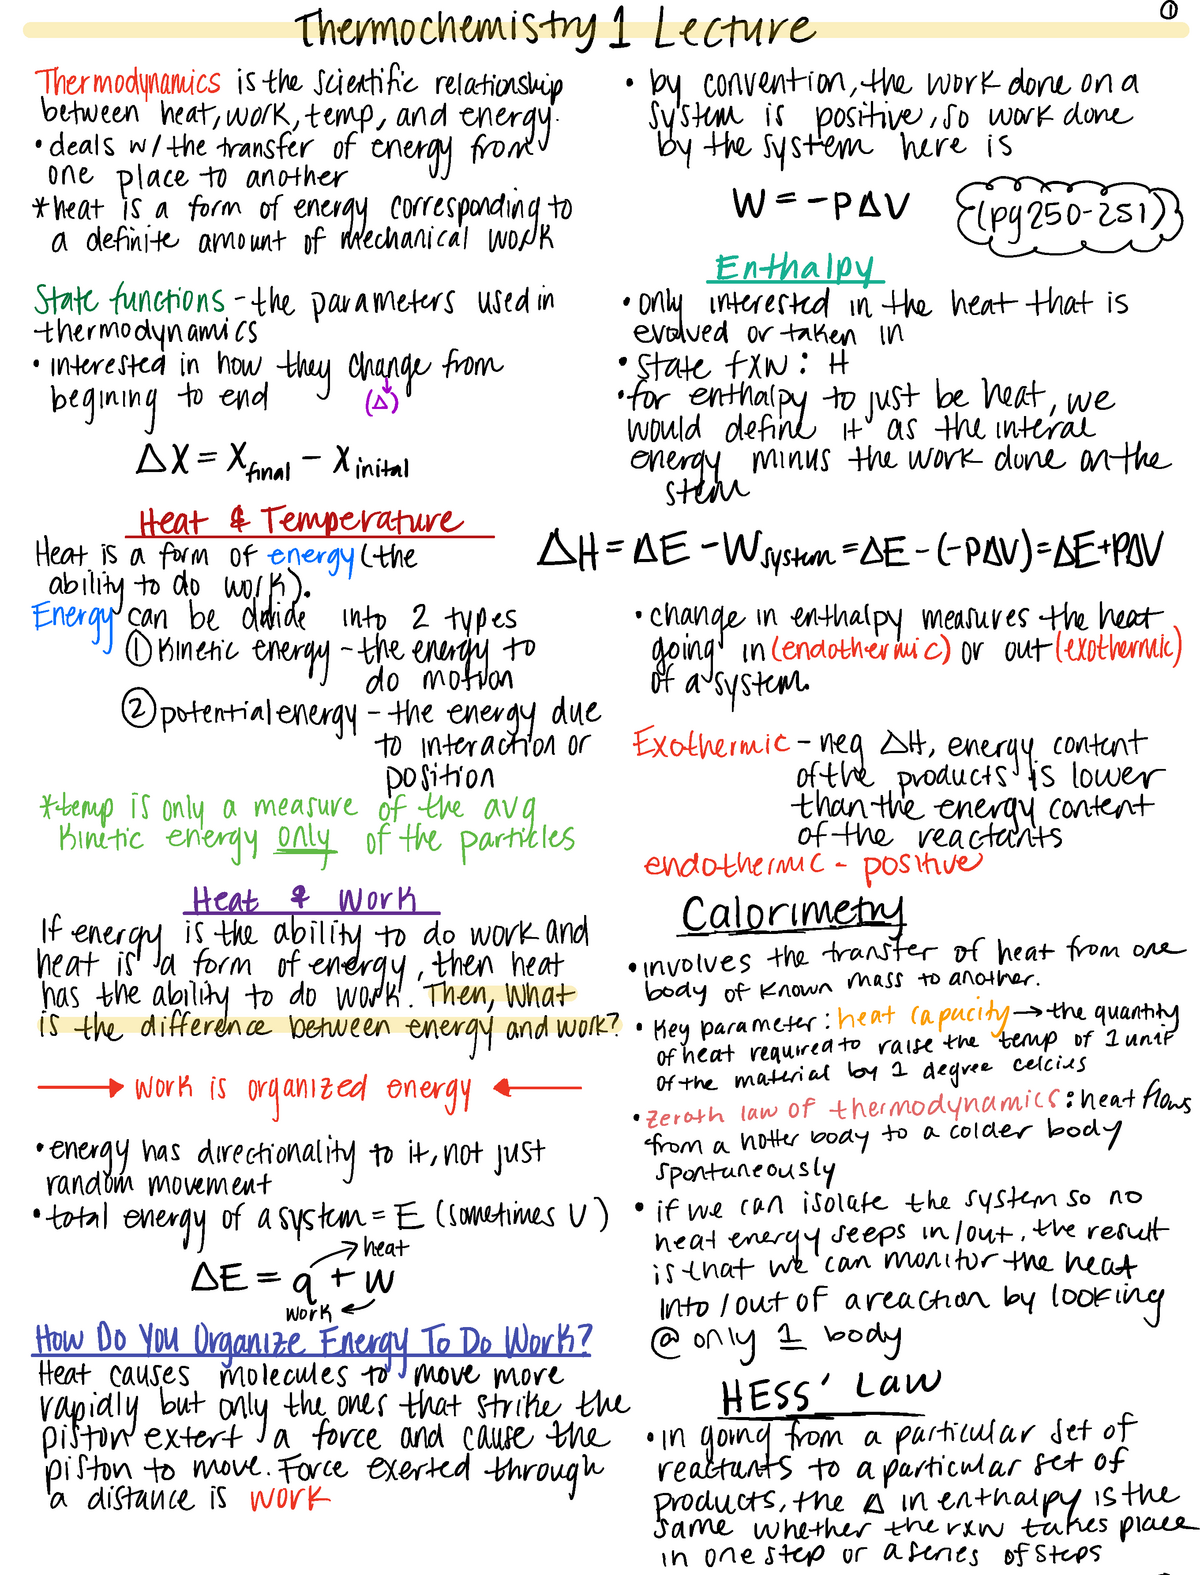 Thermochemistry 1 Lecture
①
Thermodynamics is the scientific relationship
between heat, work, temp, and energy.
• deals w/ the transfer of energy from
one place to another
*heat is a form of energy corresponding to
a definite amount of mechanical work
State functions - the parameters used in
thermodynamics
• interested in how they change from
begining to end
(Δ)
ΔX = Xfinal - Xinital
Heat & Temperature
Heat is a form of energy (the
ability to do work).
Energy can be divide into 2 types
① Kinetic energy - the energy to
do motion
② potential energy - the energy due
to interaction or
position
*temp is only a measure of the avg
kinetic energy only of the particles
Heat & Work
If energy is the ability to do work and
heat is a form of energy, then heat
has the ability to do work. Then, what
is the difference between energy and work?
→ work is organized energy ←
• energy has directionality to it, not just
random movement
• total energy of a system = E (sometimes U)
→ heat
ΔE = q + w
work ←
How Do You Organize Energy To Do Work?
Heat causes molecules to move more
rapidly but only the ones that strike the
piston extert a force and cause the
piston to move. Force exerted through
a distance is work
• by convention, the work done on a
system is positive, so work done
by the system here is
W = -PΔV
(pg 250-251)
Enthalpy
• only interested in the heat that is
evolved or taken in
• state fxn: H
• for enthalpy to just be heat, we
would define it as the interal
energy minus the work done on the
stem
ΔH = ΔE - Wsystem = ΔE - (-PΔV) = ΔE + PΔV
• change in enthalpy measures the heat
going in (endothermic) or out (exothermic)
of a system.
Exothermic - neg ΔH, energy content
of the products is lower
than the energy content
of the reactants
endothermic - positive
Calorimetry
• involves the transfer of heat from one
body of known mass to another.
• Key parameter: heat capacity → the quantity
of heat required to raise the temp of 1 unit
of the material by 1 degree celcius
• Zeroth law of thermodynamics: heat flows
from a hotter body to a colder body
spontuneously
• if we can isolate the system so no
heat energy seeps in/out, the result
is that we can monitor the heat
into/out of a reaction by looking
@ only 1 body
HESS' Law
• in going from a particular set of
reactants to a particular set of
products, the Δ in enthalpy is the
same whether the rxn takes place
in one step or a series of steps